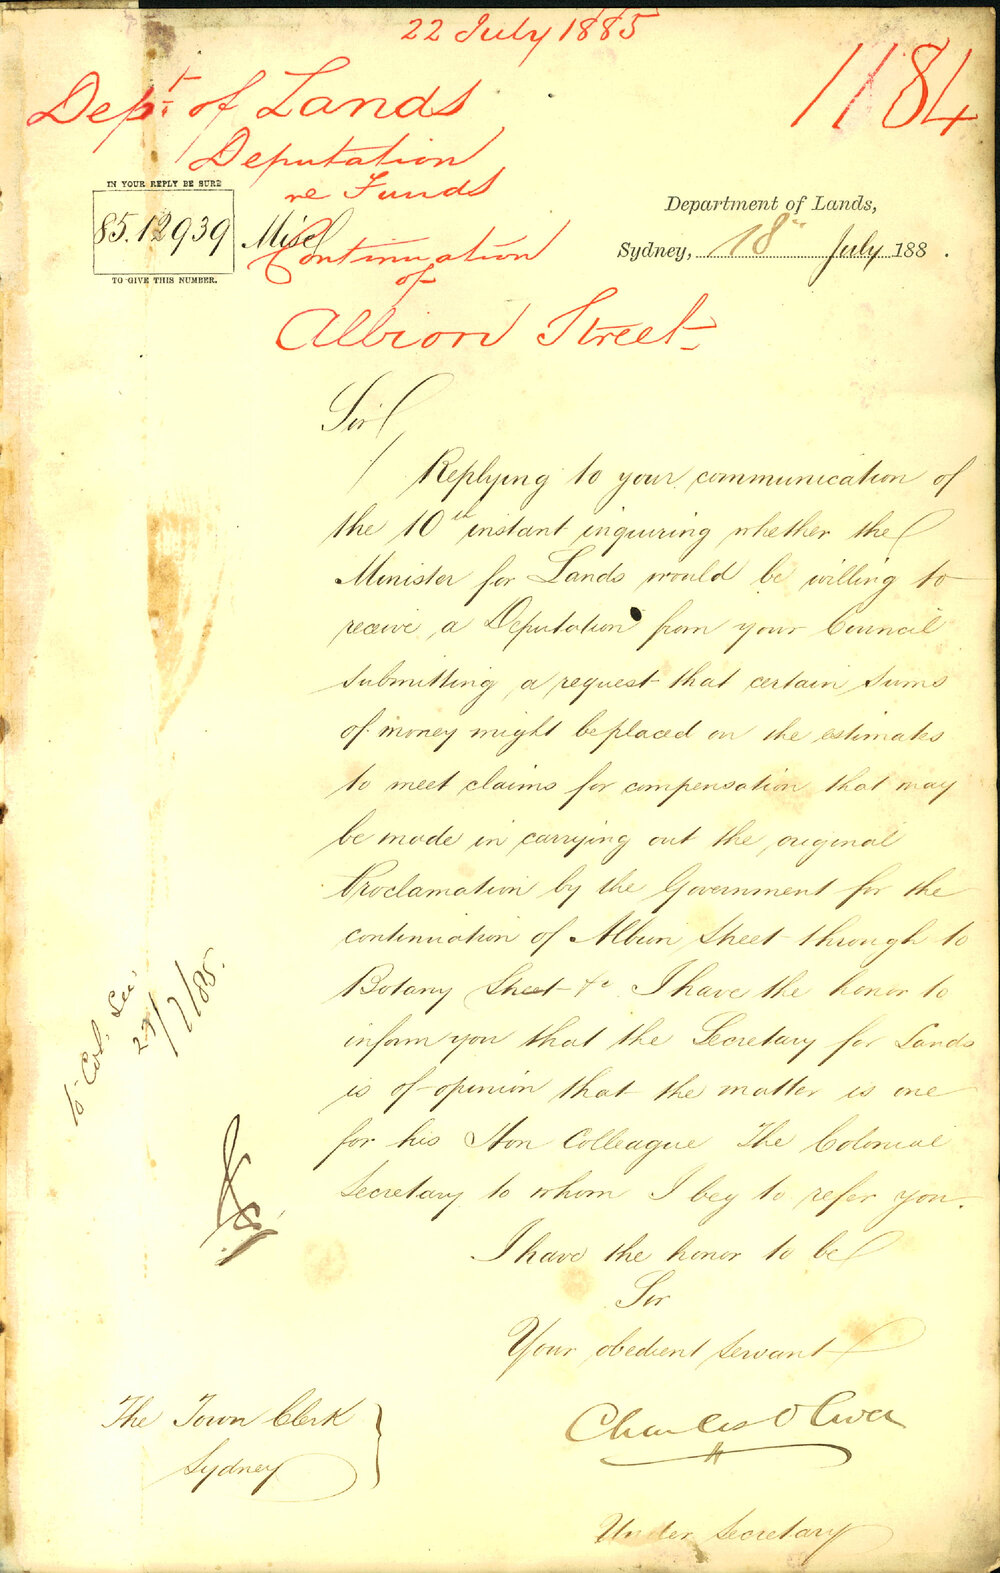 22 July 1885
1184
Dept. of Lands
Deputation
re Funds
Continuation
of
Albion Street
IN YOUR REPLY BE SURE
85.12939
TO GIVE THIS NUMBER.
Misc
Department of Lands,
Sydney, 18th July 188 .
Sir
Replying to your communication of
the 10th instant inquiring whether the
Minister for Lands would be willing to
receive a Deputation from your Council
submitting a request that certain sums
of money might be placed on the estimates
to meet claims for compensation that may
be made in carrying out the original
Proclamation by the Government for the
continuation of Albion Street through to
Botany Street &c I have the honor to
inform you that the Secretary for Lands
is of opinion that the matter is one
for his Hon Colleague The Colonial
Secretary to whom I beg to refer you.
I have the honor to be
Sir
Your obedient servant
Charles Oliver
Under Secretary
The Town Clerk
Sydney
To Col. Sec.
/7/85.